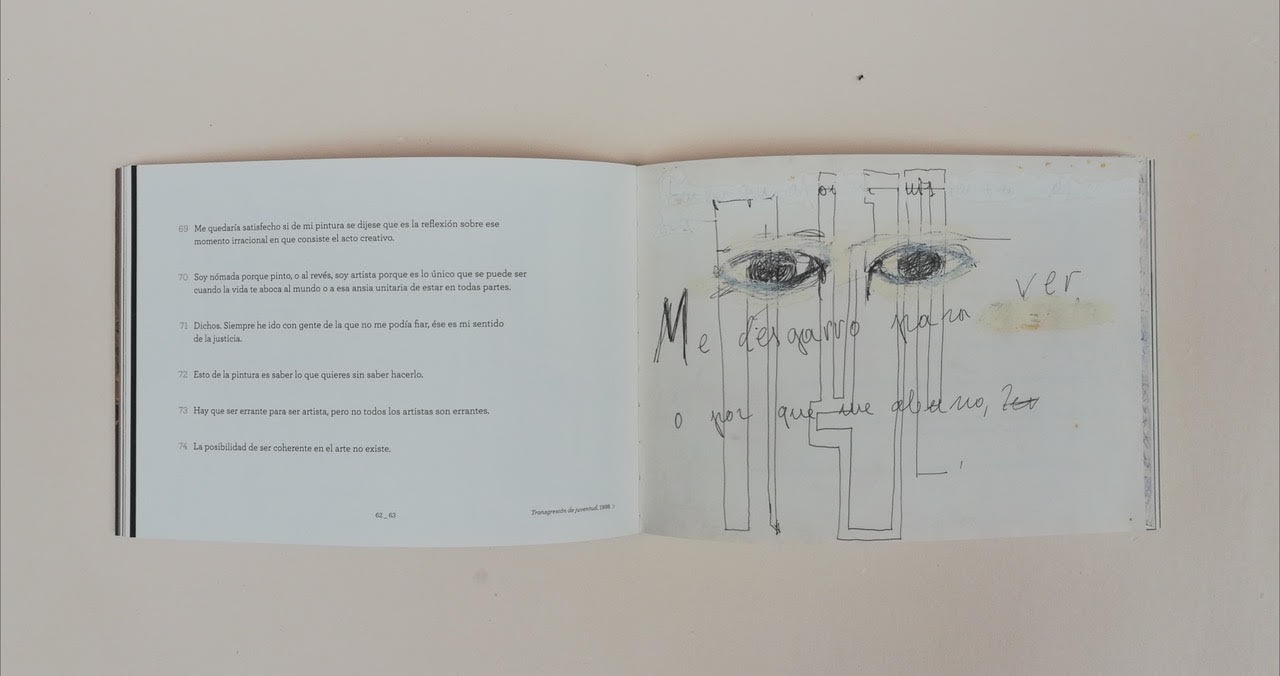 69 Me quedaría satisfecho si de mi pintura se dijese que es la reflexión sobre ese
momento irracional en que consiste el acto creativo.
70 Soy nómada porque pinto, o al revés, soy artista porque es lo único que se puede ser
cuando la vida te aboca al mundo o a esa ansia unitaria de estar en todas partes.
71 Dichos. Siempre he ido con gente de la que no me podía fiar, ése es mi sentido
de la justicia.
72 Esto de la pintura es saber lo que quieres sin saber hacerlo.
73 Hay que ser errante para ser artista, pero no todos los artistas son errantes.
74 La posibilidad de ser coherente en el arte no existe.
62_63
Transgresión de juventud, 1998
ver,
Me desgarro para
o por que me aburro,